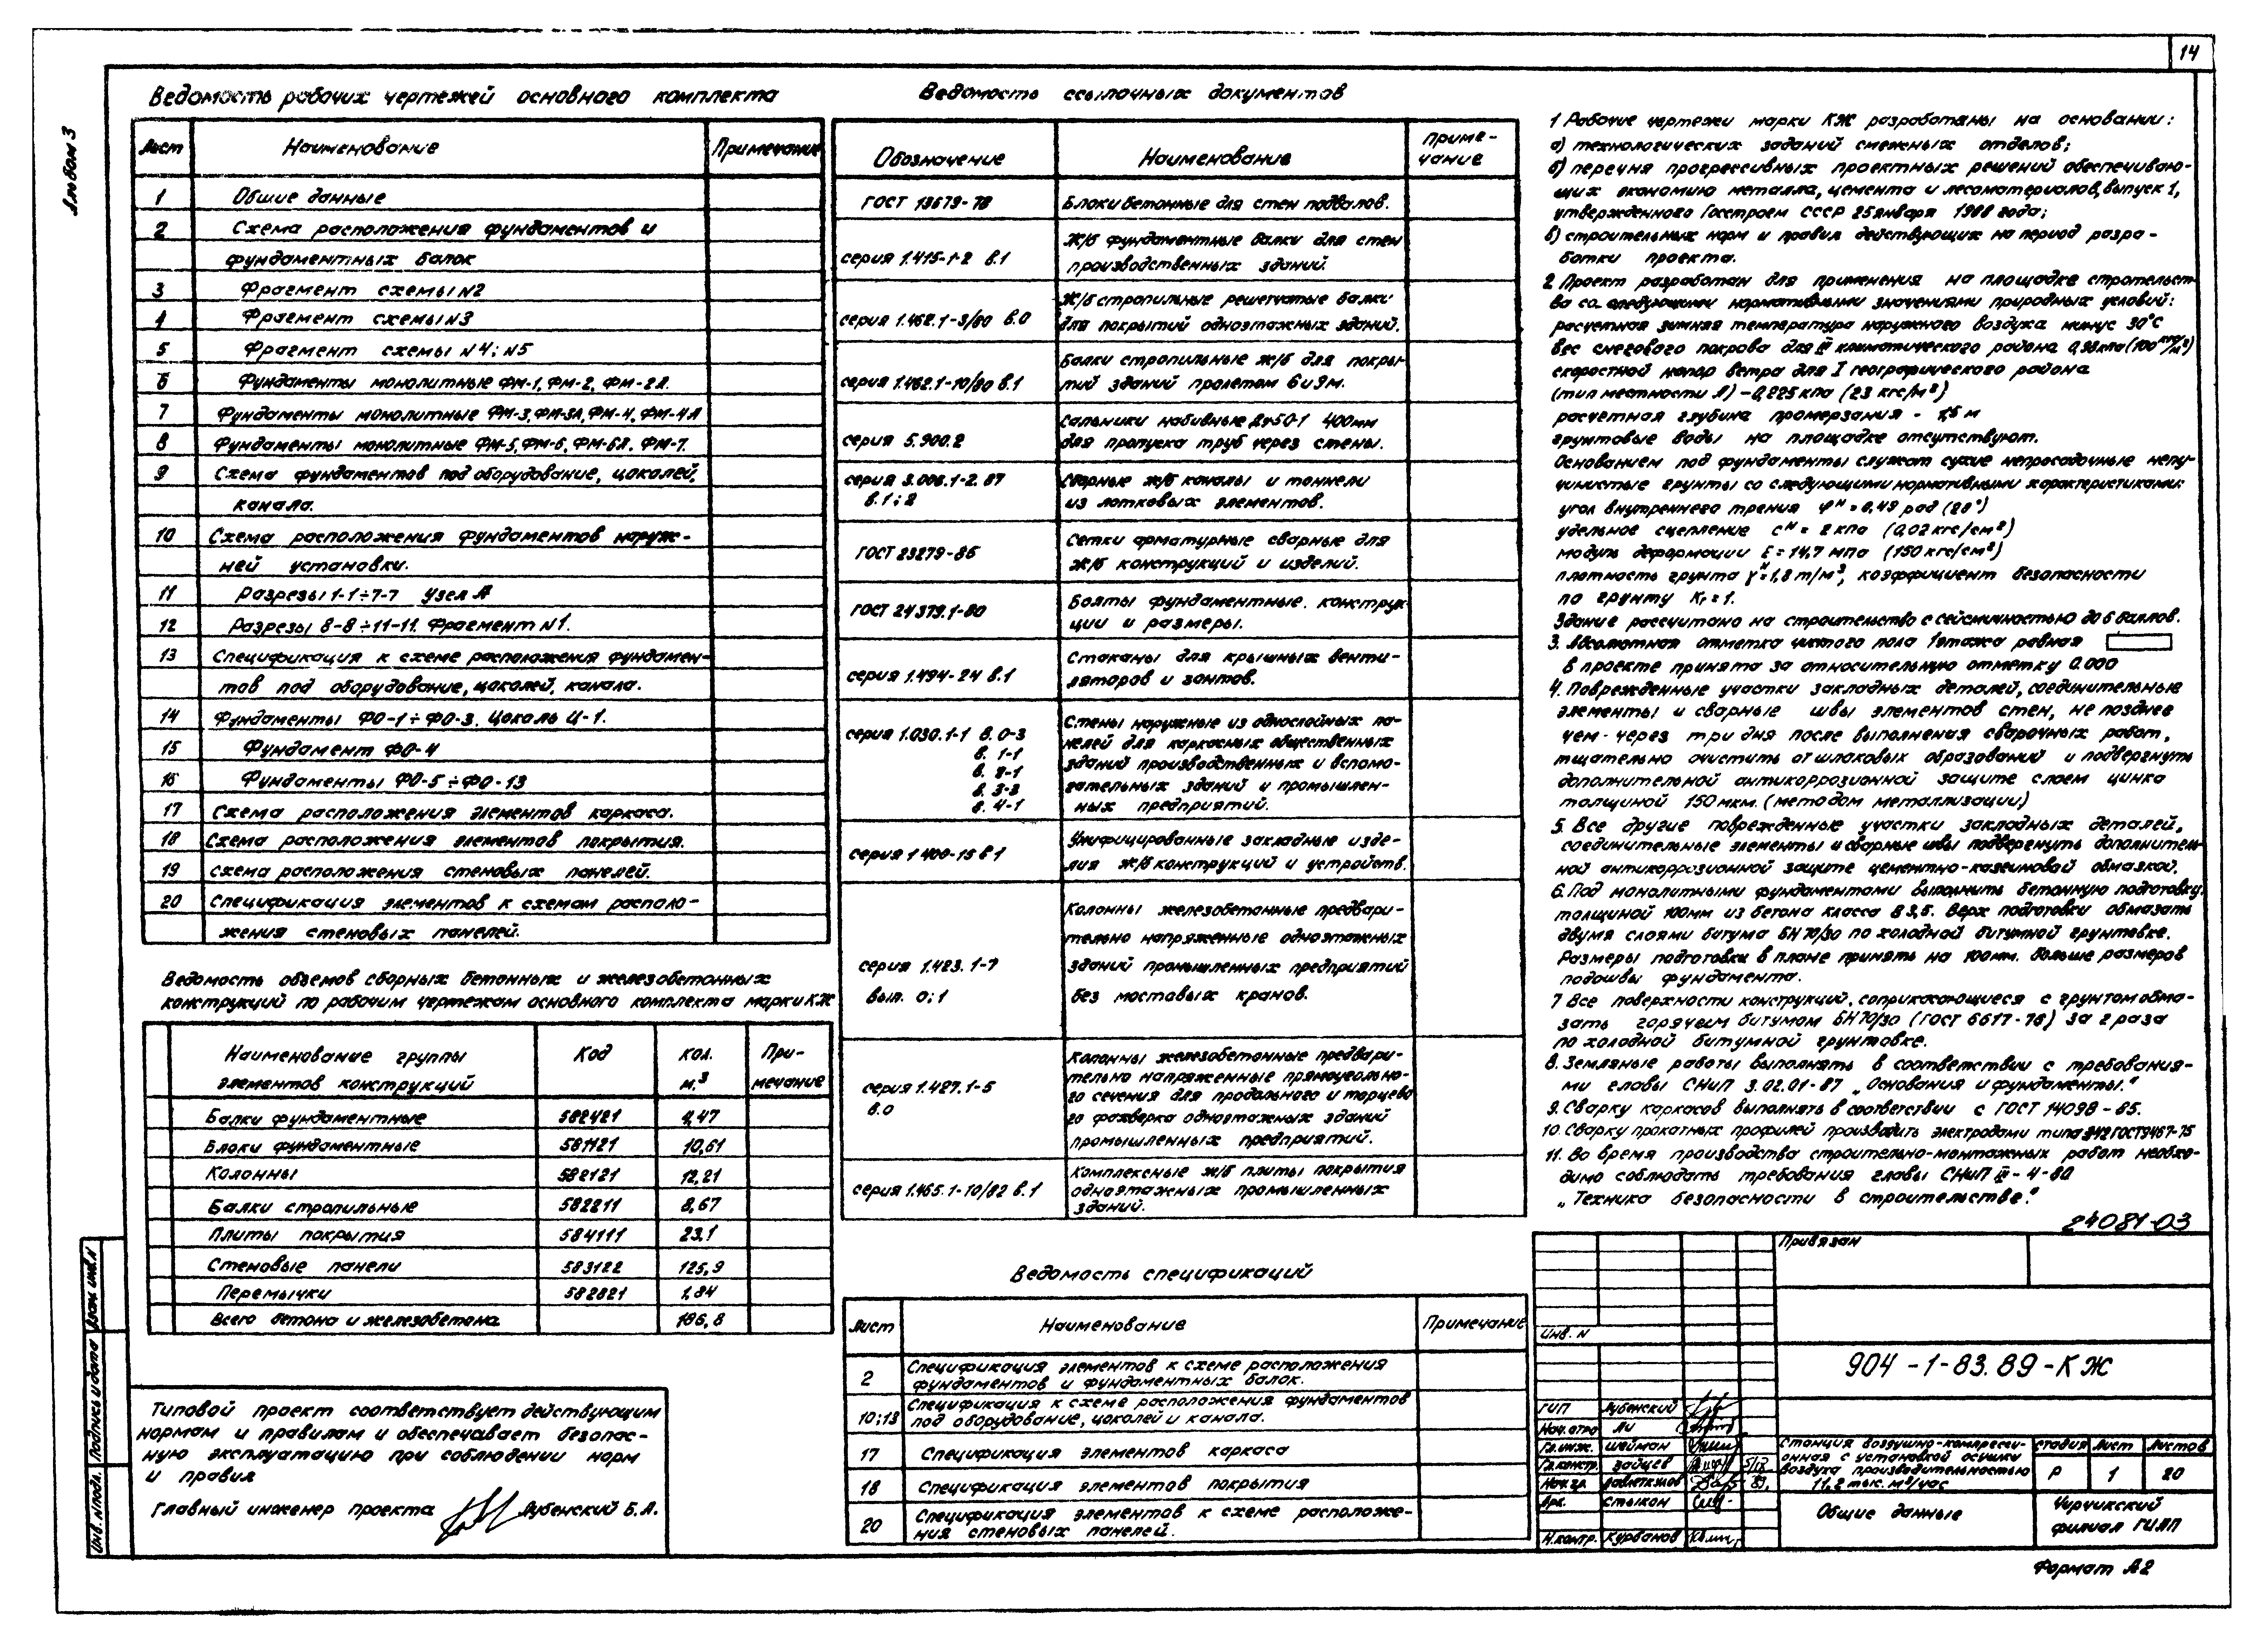 14
Альбом 3
Ведомость рабочих чертежей основного комплекта
Лист Наименование Примечание
1 Общие данные
2 Схема расположения фундаментов и
фундаментных балок
3 Фрагмент схемы N2
4 Фрагмент схемы N3
5 Фрагмент схемы N4; N5
6 Фундаменты монолитные ФМ-1, ФМ-2, ФМ-2А.
7 Фундаменты монолитные ФМ-3, ФМ-3А, ФМ-4, ФМ-4А
8 Фундаменты монолитные ФМ-5, ФМ-6, ФМ-6А, ФМ-7.
9 Схема фундаментов под оборудование, цоколей,
канала.
10 Схема расположения фундаментов наруж-
ней установки.
11 Разрезы 1-1÷7-7 Узел А
12 Разрезы 8-8÷11-11. Фрагмент N1.
13 Спецификация к схеме расположения фундамен-
тов под оборудование, цоколей, канала.
14 Фундаменты ФО-1÷ФО-3. Цоколь Ц-1.
15 Фундамент ФО-4
16 Фундаменты ФО-5÷ФО-13
17 Схема расположения элементов каркаса.
18 Схема расположения элементов покрытия.
19 Схема расположения стеновых панелей.
20 Спецификация элементов к схемам располо-
жения стеновых панелей.
Ведомость объемов сборных бетонных и железобетонных
конструкций по рабочим чертежам основного комплекта марки КЖ
Наименование группы Код кол. При-
элементов конструкций м.³ мечание
Балки фундаментные 582421 4,47
Блоки фундаментные 581121 10,61
Колонны 582121 12,21
Балки стропильные 582211 8,67
Плиты покрытия 584111 23,1
Стеновые панели 583122 125,9
Перемычки 582821 1,84
Всего бетона и железобетона 186,8
Типовой проект соответствует действующим
нормам и правилам и обеспечивает безопас-
ную эксплуатацию при соблюдении норм
и правил
Главный инженер проекта Лубенский Б.А.
Инв. N подл. Подпись и дата Взам. инв. N
Ведомость ссылочных документов
Обозначение Наименование Приме-
чание
ГОСТ 13579-78 Блоки бетонные для стен подвалов.
серия 1.415-1-2 в.1 Ж/б фундаментные балки для стен
производственных зданий.
серия 1.462.1-3/80 в.0 Ж/б стропильные решетчатые балки
для покрытий одноэтажных зданий.
серия 1.462.1-10/80 в.1 Балки стропильные ж/б для покры-
тий зданий пролетом 6 и 9м.
серия 5.900.2 Сальники набивные Ду50-1 400мм
для пропуска труб через стены.
серия 3.006.1-2.87 Сборные ж/б каналы и тоннели
в.1; 2 из лотковых элементов.
ГОСТ 23279-85 Сетки арматурные сварные для
ж/б конструкций и изделий.
ГОСТ 24379.1-80 Болты фундаментные. конструк-
ции и размеры.
серия 1.494-24 в.1 Стаканы для крышных венти-
ляторов и зонтов.
серия 1.030.1-1 в. 0-3 Стены наружные из однослойных па-
в. 1-1 нелей для каркасных общественных
в. 2-1 зданий производственных и вспомо-
в. 3-3 гательных зданий и промышлен-
в. 4-1 ных предприятий.
серия 1 400-15 в1 Унифицированные закладные изде-
лия ж/б конструкций и устройств.
Колонны железобетонные предвари-
тельно напряженные одноэтажных
серия 1.423.1-7 зданий промышленных предприятий
вып. 0; 1 без мостовых кранов.
Колонны железобетонные предвари-
серия 1.427.1-5 тельно напряженные прямоугольно-
в.0 го сечения для продольного и торцево
го фахверка одноэтажных зданий
промышленных предприятий.
серия 1.465.1-10/82 в.1 Комплексные ж/б плиты покрытия
одноэтажных промышленных
зданий.
Ведомость спецификаций
Лист Наименование Примечание
2 Спецификация элементов к схеме расположения
фундаментов и фундаментных балок.
10; 13 Спецификация к схеме расположения фундаментов
под оборудование, цоколей и канала.
17 Спецификация элементов каркаса
18 Спецификация элементов покрытия
20 Спецификация элементов к схеме расположе-
ния стеновых панелей.
1 Рабочие чертежи марки КЖ разработаны на основании:
а) технологических заданий смежных отделов;
б) перечня прогрессивных проектных решений обеспечиваю-
щих экономию металла, цемента и лесоматериалов, выпуск 1,
утвержденного Госстроем СССР 25 января 1988 года;
в) строительных норм и правил действующих на период разра-
ботки проекта.
2 Проект разработан для применения на площадке строительст
ва со следующими нормативными значениями природных условий:
расчетная зимняя температура наружного воздуха минус 30°С
вес снегового покрова для III климатического района 0,98 кПа (100 кгс/м²)
скоростной напор ветра для I географического района
(тип местности А) – 0,225 кПа (23 кгс/м²)
расчетная глубина промерзания - 1,5 м
грунтовые воды на площадке отсутствуют.
Основанием под фундаменты служат сухие непросадочные непу-
чинистые грунты со следующими нормативными характеристиками:
угол внутреннего трения φᴴ = 0,49 рад (28°)
удельное сцепление сᴴ = 2 кПа (0,02 кгс/см²)
модуль деформации Е = 14,7 МПа (150 кгс/см²)
плотность грунта γᴴ = 1,8 т/м³, коэффициент безопасности
по грунту Кг = 1.
Здание рассчитано на строительство с сейсмичностью до 6 баллов.
3. Абсолютная отметка чистого пола 1 этажа равная
в проекте принята за относительную отметку 0.000
4. Поврежденные участки закладных деталей, соединительные
элементы и сварные швы элементов стен, не позднее
чем - через три дня после выполнения сварочных работ,
тщательно очистить от шлаковых образований и подвергнуть
дополнительной антикоррозионной защите слоем цинка
толщиной 150 мкм. (методом металлизации)
5. Все другие поврежденные участки закладных деталей,
соединительные элементы и сварные швы подвергнуть дополнитель
ной антикоррозионной защите цементно-казеиновой обмазкой.
6. Под монолитными фундаментами выполнить бетонную подготовку
толщиной 100мм из бетона класса В 3,5. Верх подготовки обмазать
двумя слоями битума БН 70/30 по холодной битумной грунтовке.
Размеры подготовки в плане принять на 100мм. больше размеров
подошвы фундамента.
7 Все поверхности конструкций, соприкасающиеся с грунтом обма-
зать горячем битумом БН 70/30 (ГОСТ 6617-76) за 2 раза
по холодной битумной грунтовке.
8. Земляные работы выполнять в соответствии с требования-
ми главы СНиП 3.02.01-87 „Основания и фундаменты."
9. Сварку каркасов выполнять в соответствии с ГОСТ 14098-85.
10. Сварку прокатных профилей производить электродами типа Э42 ГОСТ 9467-75
11. Во время производства строительно-монтажных работ необхо-
димо соблюдать требования главы СНиП III-4-80
„Техника безопасности в строительстве."
24081-03
Привязан
Инв. N
904-1-83.89-КЖ
ГИП Лубенский
Нач. отд Ли
Гл. инж. Шейман
Гл. констр. Зайцев
Нач. гр.
Арх. Стыкон
Н. контр. Курбанов
Станция воздушно-компресси-
онная с установкой осушки
воздуха производительностью
11,2 тыс. м³/час
стадия Лист Листов
Р 1 20
Общие данные
Чирчикский
филиал ГИАП
Формат А2